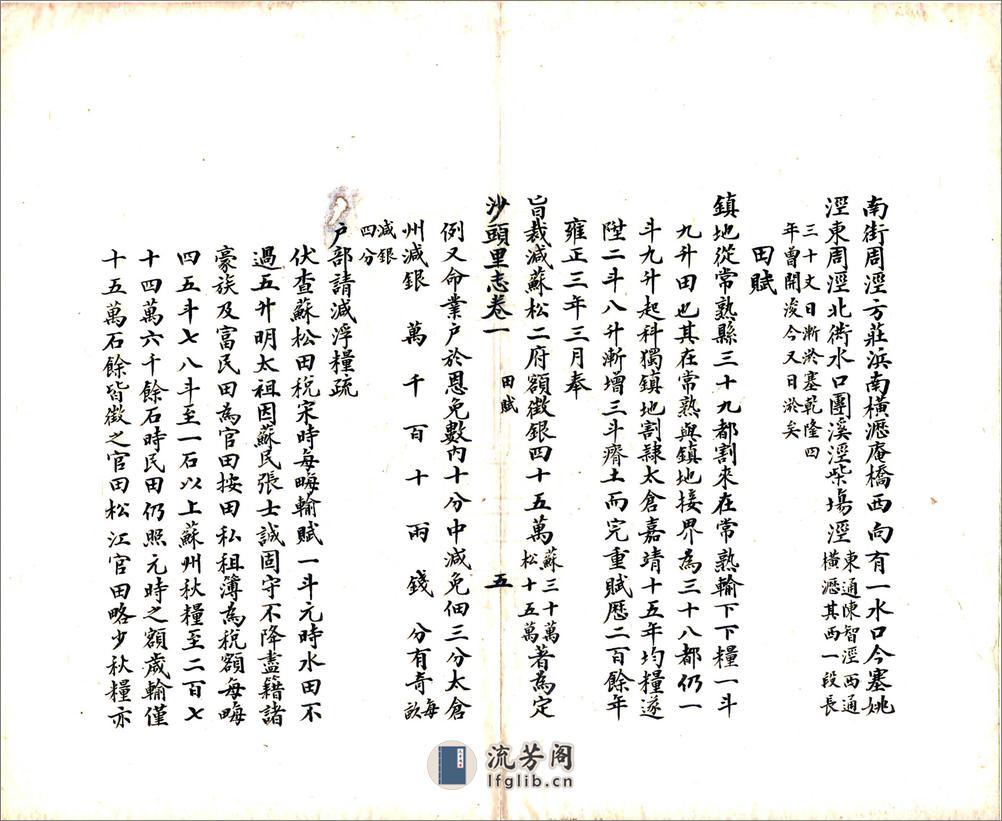 南街周涇方莊浜南橫瀝庵橋西向有一水口今塞姚
涇東周涇北衖水口團溪涇柴場涇東通陳智涇西通橫瀝其西一段長
三十丈日漸淤塞乾隆四年曾開浚今又日淤矣
田賦
鎮地從常熟縣三十九都割來在常熟輸下下糧一斗
九升田也其在常熟與鎮地接界為三十八都仍一
斗九升起科獨鎮地割隸太倉嘉靖十五年均糧遂
陞二斗八升漸增三斗瘠土而完重賦歷二百餘年
雍正三年三月奉
旨裁減蘇松二府額徵銀四十五萬蘇三十萬松十五萬著為定
沙頭里志卷一 田賦 五
例又命業户於恩免數內十分中減免佃三分太倉
州減銀 萬 千 百 十 兩 錢 分有奇每畝
減銀四分
户部請減浮糧疏
伏查蘇松田稅宋時每畮輸賦一斗元時水田不
過五升明太祖因蘇民張士誠固守不降盡籍諸
豪族及富民田為官田按田私租簿為稅額每畮
四五斗七八斗至一石以上蘇州秋糧至二百七
十四萬六千餘石時民田仍照元時之額歲輸僅
十五萬石餘皆徵之官田松江官田略少秋糧亦
流芳阁
lfglib.cn